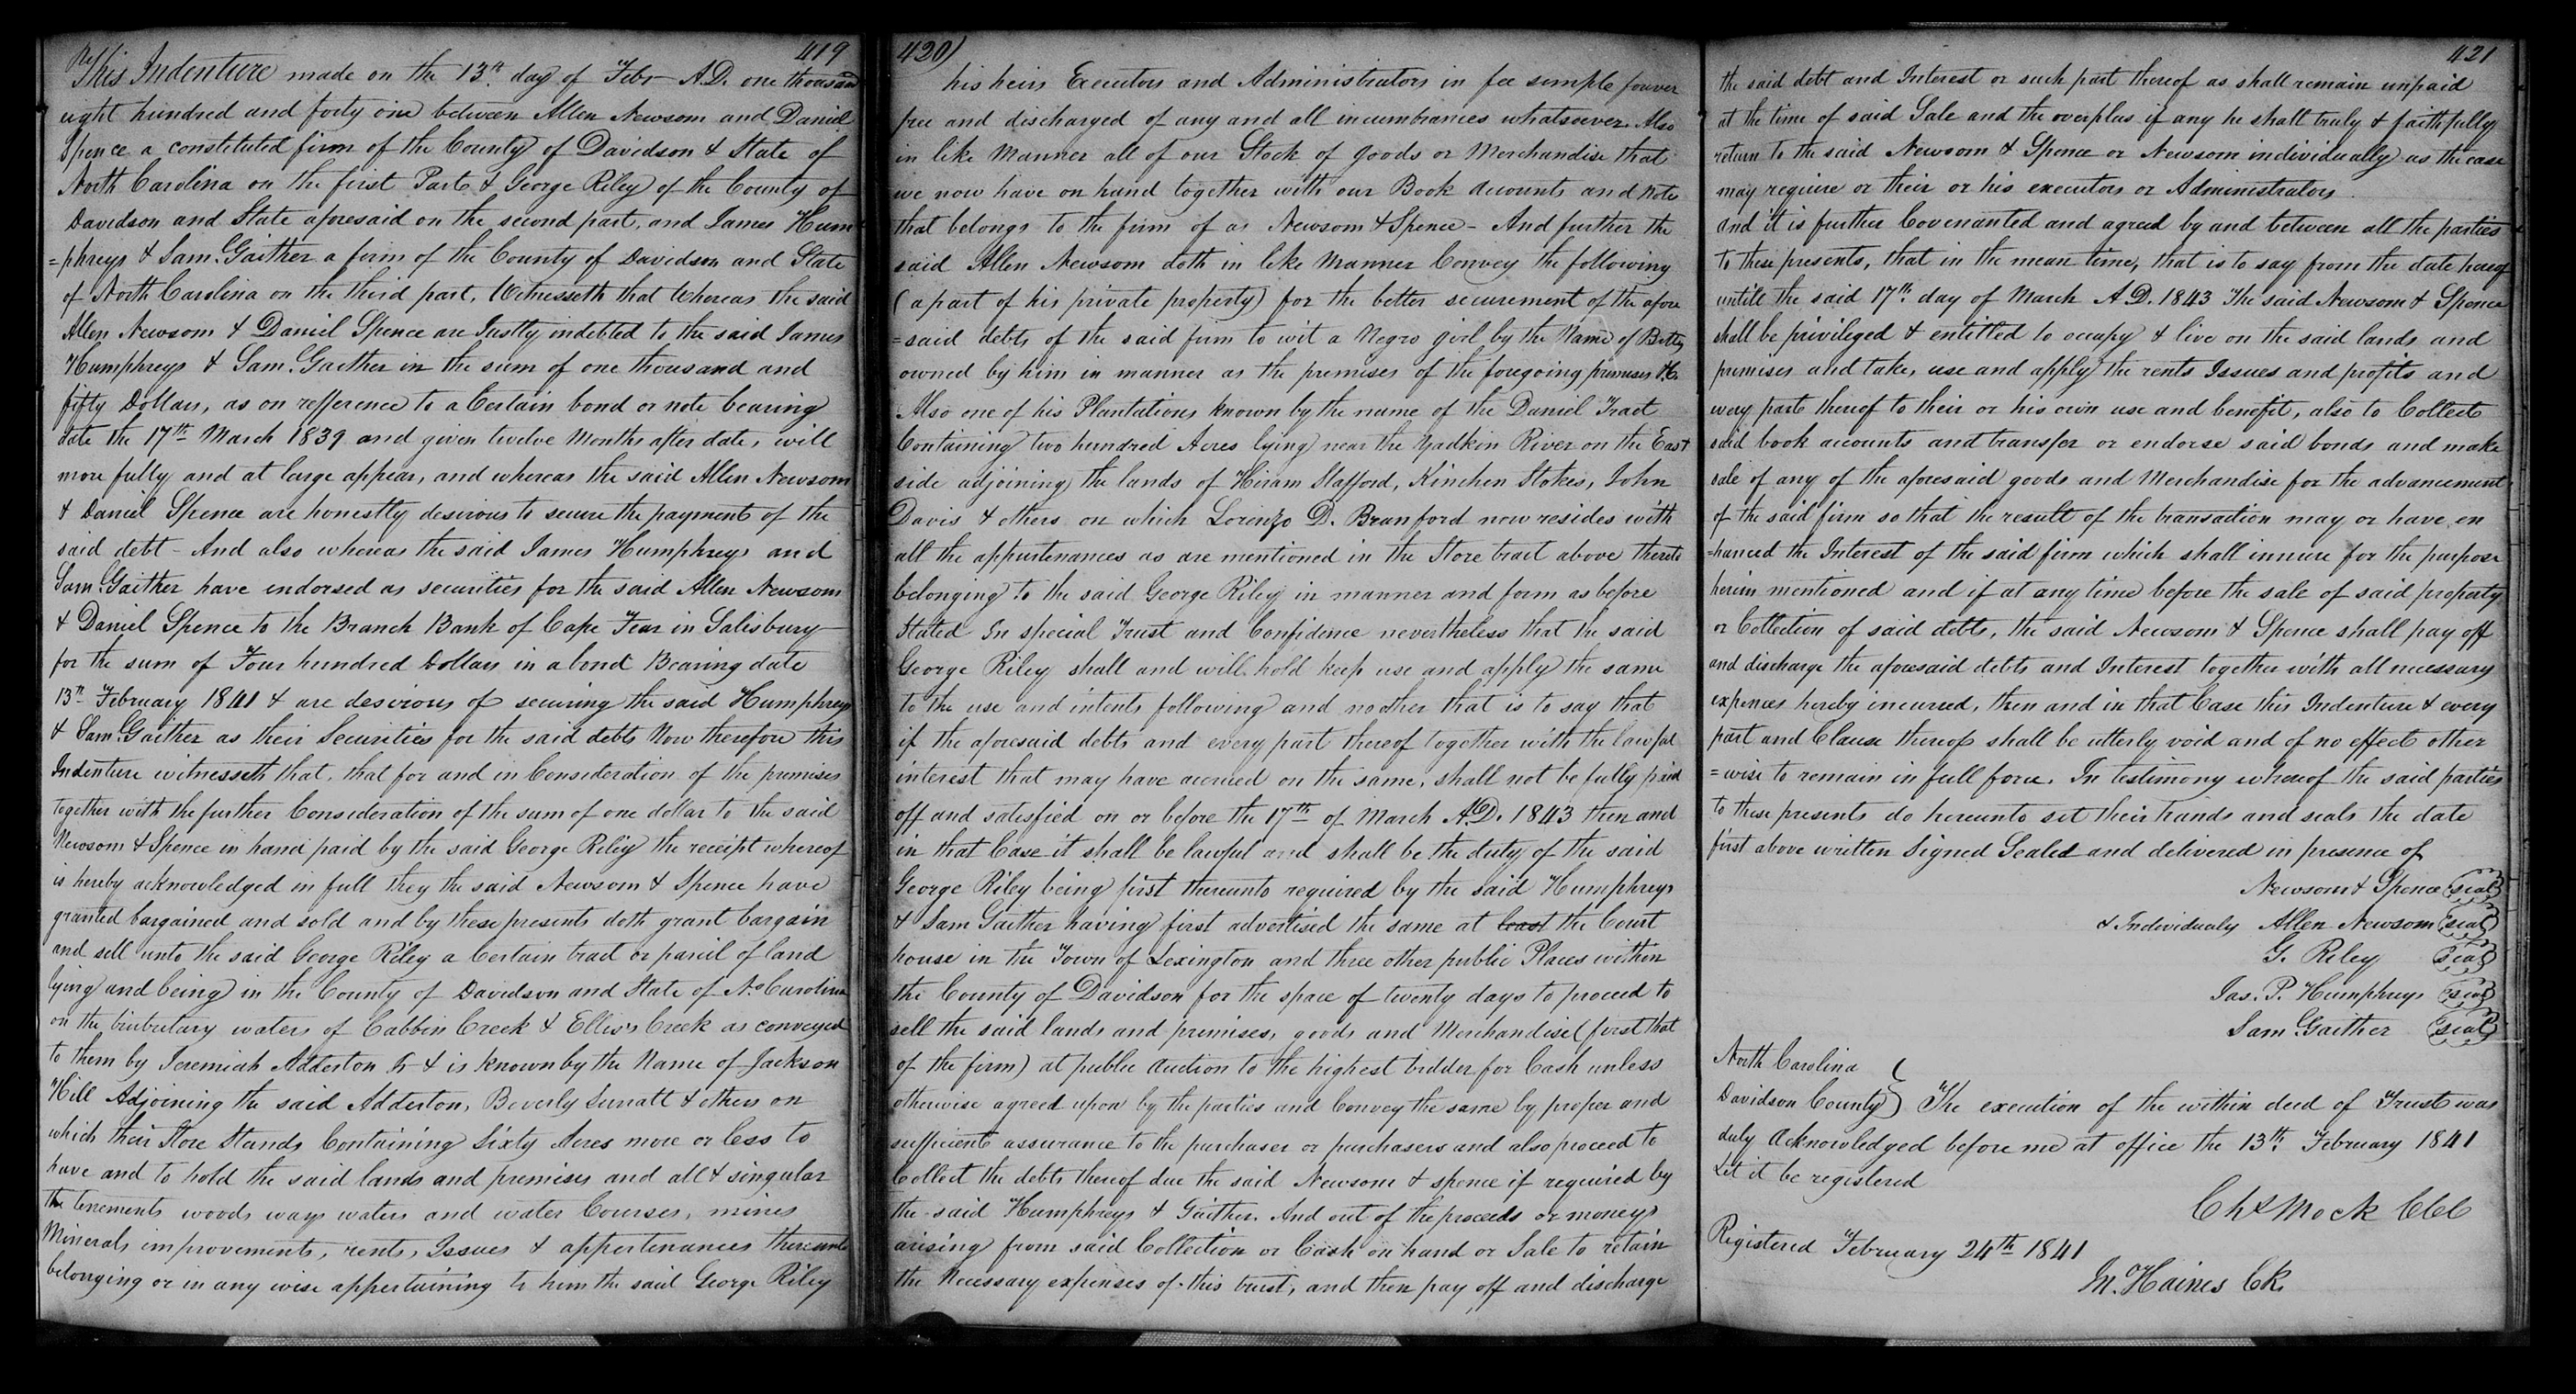 419
This Indenture made on the 13th day of Febr A.D. one thousand
eight hundred and forty one between Allen Newsom and Daniel
Spence a constituted firm of the County of Davidson & State of
North Carolina on the first Part & George Riley of the County of
Davidson and State aforesaid on the second part, and James Hum
=phreys & Saml. Gaither a firm of the County of Davidson and State
of North Carolina on the third part, Witnesseth that Whereas the said
Allen Newsom & Daniel Spence are Justly indebted to the said James
Humphreys & Saml. Gaither in the sum of one thousand and
fifty Dollars, as on refference to a Certain bond or note bearing
date the 17th March 1839 and given twelve Months after date, will
more fully and at large appear, and whereas the said Allen Newsom
& Daniel Spence are honestly desirous to secure the payment of the
said debt - And also whereas the said James Humphreys and
Saml. Gaither have endorsed as securities for the said Allen Newsom
& Daniel Spence to the Branch Bank of Cape Fear in Salisbury
for the sum of Four hundred Dollars in a bond Bearing date
13th February 1841 & are desirous of securing the said Humphreys
& Saml. Gaither as their Securities for the said debts Now therefore this
Indenture witnesseth that, that for and in Consideration of the premises
together with the further Consideration of the sum of one dollar to the said
Newsom & Spence in hand paid by the said George Riley the receipt whereof
is hereby acknowledged in full they the said Newsom & Spence have
granted bargained and sold and by these presents doth grant bargain
and sell unto the said George Riley a Certain tract or parcil of land
lying and being in the County of Davidson and State of No Carolina
on the tributary waters of Cabbin Creek & Ellis's Creek as conveyed
to them by Jeremiah Adderton Sr & is known by the Name of Jackson
Hill Adjoining the said Adderton, Beverly Surratt & others on
which their Store Stands Containing Sixty Acres more or less to
have and to hold the said lands and premises and all & singular
the tenements woods ways waters and water Courses, mines
Minerals improvements, rents, Issues & appertenances thereunto
belonging or in any wise appertaining to him the said George Riley
420)
his heirs Executors and Administrators in fee simple forever
free and discharged of any and all incumbrances whatsoever. Also
in like Manner all of our Stock of goods or Merchandise that
we now have on hand together with our Book accounts and Notes
that belongs to the firm of as Newsom & Spence - And further the
said Allen Newsom doth in like Manner Convey the following
(a part of his private property) for the better securement of the afore
=said debts of the said firm to wit a Negro girl by the Name of Betty
owned by him in manner as the premises of the foregoing premises &c.
Also one of his Plantations known by the name of the Daniel Tract
Containing two hundred Acres lying near the Yadkin River on the East
side adjoining the lands of Hiram Stafford, Kinchen Stokes, John
Davis & others on which Lorenzo D. Branford now resides with
all the appurtenances as are mentioned in the Store tract above thereto
belonging to the said George Riley in manner and form as before
Stated In special Trust and Confidence nevertheless that the said
George Riley shall and will hold keep use and apply the same
to the use and intents following and no other that is to say that
if the aforesaid debts and every part thereof together with the lawful
interest that may have accrued on the same, shall not be fully paid
off and satisfied on or before the 17th of March A.D. 1843 then and
in that Case it shall be lawful and shall be the duty of the said
George Riley being first thereunto required by the said Humphreys
& Saml Gaither having first advertised the same at least the Court
house in the Town of Lexington and three other public Places within
the County of Davidson for the space of twenty days to proceed to
sell the said lands and premises, goods and Merchandise (first that
of the firm) at public Auction to the highest bidder for Cash unless
otherwise agreed upon by the parties and Convey the same by proper and
sufficient assurance to the purchaser or purchasers and also proceed to
Collect the debts thereof due the said Newsom & spence if required by
the said Humphreys & Gaither. And out of the proceeds or moneys
arising from said Collection or Cash on hand or Sale to retain
the Necessary expenses of this trust, and then pay off and discharge
421
the said debt and Interest or such part thereof as shall remain unpaid
at the time of said Sale and the overplus if any he shall truly & faithfully
return to the said Newsom & Spence or Newsom individually as the case
may require or their or his executors or Administrators.
and it is further Covenanted and agreed by and between all the parties
to these presents, that in the mean time, that is to say from the date hereof
untill the said 17th day of March A.D. 1843 the said Newsom & Spence
shall be privileged & entitled to occupy & live on the said lands and
premises and take, use and apply the rents Issues and profits and
every part thereof to their or his own use and benefit, also to Collect
said book accounts and transfer or endorse said bonds and make
sale of any of the aforesaid goods and Merchandise for the advancement
of the said firm so that the result of the transaction may or have en
=hanced the Interest of the said firm which shall innure for the purpose
herein mentioned and if at any time before the sale of said property
or Collection of said debts, the said Newsom & Spence shall pay off
and discharge the aforesaid debts and Interest together with all necessary
expences hereby incurred, then and in that Case this Indenture & every
part and Clause thereof shall be utterly void and of no effect other
=wise to remain in full force. In testimony whereof the said parties
to these presents do hereunto set their hands and seals the date
first above written Signed Sealed and delivered in presence of
Newsom & Spence (seal)
& Individualy Allen Newsom (seal)
G. Riley (seal)
Jas. P. Humphreys (seal)
Saml. Gaither (seal)
North Carolina
Davidson County) The execution of the within deed of Trust was
duly Acknowledged before me at office the 13th February 1841
Let it be registered
Chs Mock CCC
Registered February 24th 1841
M. Haines Ck.